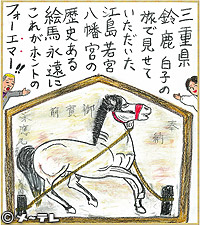 三重県
鈴鹿 白子の
旅で見せて
いただいた
江島若宮
八幡宮の
歴史ある
絵馬永遠に
これがホントの
フォーエマー!!
奉納
御寶前
©メ〜テレ